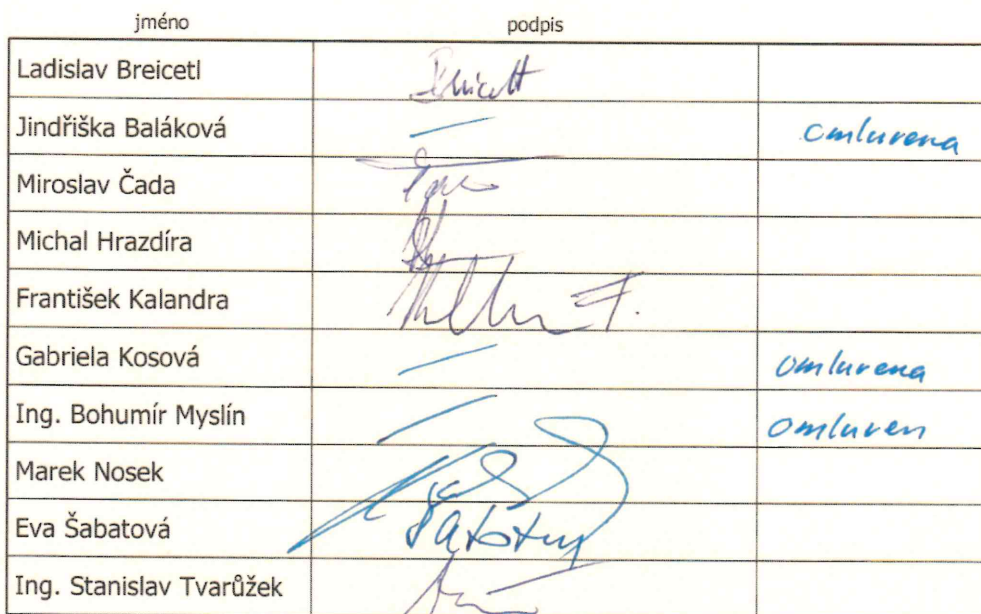 jméno podpis
Ladislav Breicetl
Jindřiška Baláková — omluvena
Miroslav Čada
Michal Hrazdíra
František Kalandra
Gabriela Kosová — omluvena
Ing. Bohumír Myslín — omluven
Marek Nosek
Eva Šabatová
Ing. Stanislav Tvarůžek